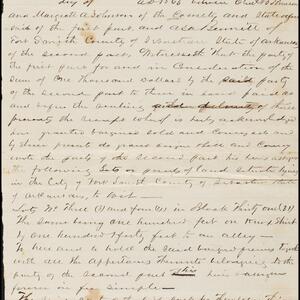 day of A.D. 1866 between Chas. B Johnson
and Margrett A. Johnson of the County and State afore
said of the first part, and Asa Bennett of
Fort Smith County of Sebastian State of Arkansas
of the second part, Witnesseth that the party of
the first part for and in Consideration of the
Sum of One Thousand Dollars by the said party
of the Second part to them in hand paid at
and before the sealing and delivery of these
presents the receipt whereof is hereby acknowledged
have granted bargained sold and Conveyed and
by these presents do grant bargain sell and Convey
unto the party of the Second part his heirs assigns
the following Lots or parcels of land Situate lying
in the City of Fort Smith County of Sebastian State
of Arkansas, to Wit
Lots No Three (3) and four (4) in Block Thirty one (31)
The Same being one hundred feet on Knox Street
by one hundred & forty feet to an alley —
To have and to hold the said bargained premises together
with all the Appertenances thereunto belonging to the
party of the second part his heirs & assigns
forever in fee Simple —